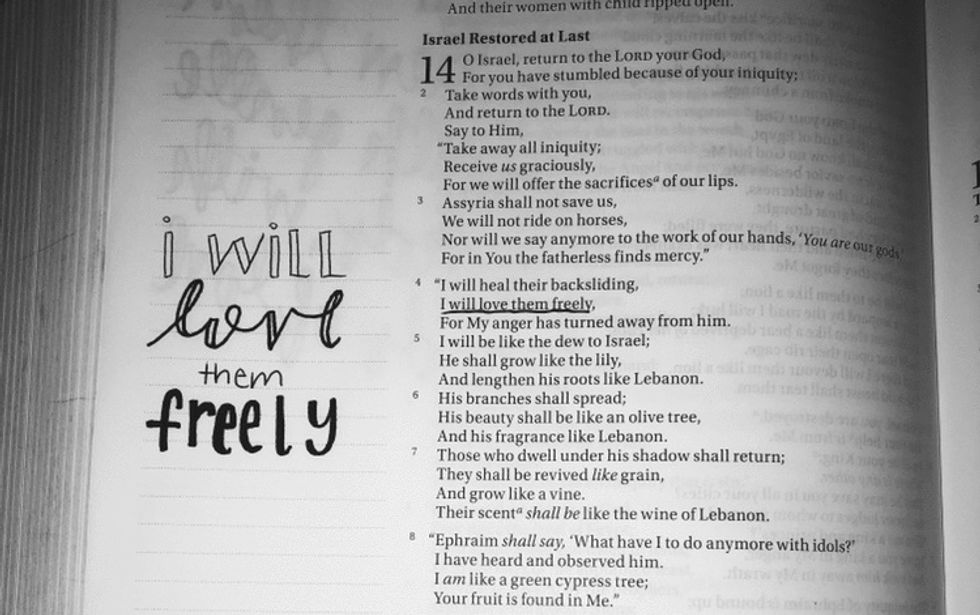 And their women with child ripped open.
Israel Restored at Last
14 O Israel, return to the LORD your God,
For you have stumbled because of your iniquity;
2 Take words with you,
And return to the LORD.
Say to Him,
“Take away all iniquity;
Receive us graciously,
For we will offer the sacrificesᵃ of our lips.
3 Assyria shall not save us,
We will not ride on horses,
Nor will we say anymore to the work of our hands, ‘You are our gods.’
For in You the fatherless finds mercy.”
4 “I will heal their backsliding,
I will love them freely,
For My anger has turned away from him.
5 I will be like the dew to Israel;
He shall grow like the lily,
And lengthen his roots like Lebanon.
6 His branches shall spread;
His beauty shall be like an olive tree,
And his fragrance like Lebanon.
7 Those who dwell under his shadow shall return;
They shall be revived like grain,
And grow like a vine.
Their scentᵃ shall be like the wine of Lebanon.
8 “Ephraim shall say, ‘What have I to do anymore with idols?’
I have heard and observed him.
I am like a green cypress tree;
Your fruit is found in Me.”
i will
love
them
freely